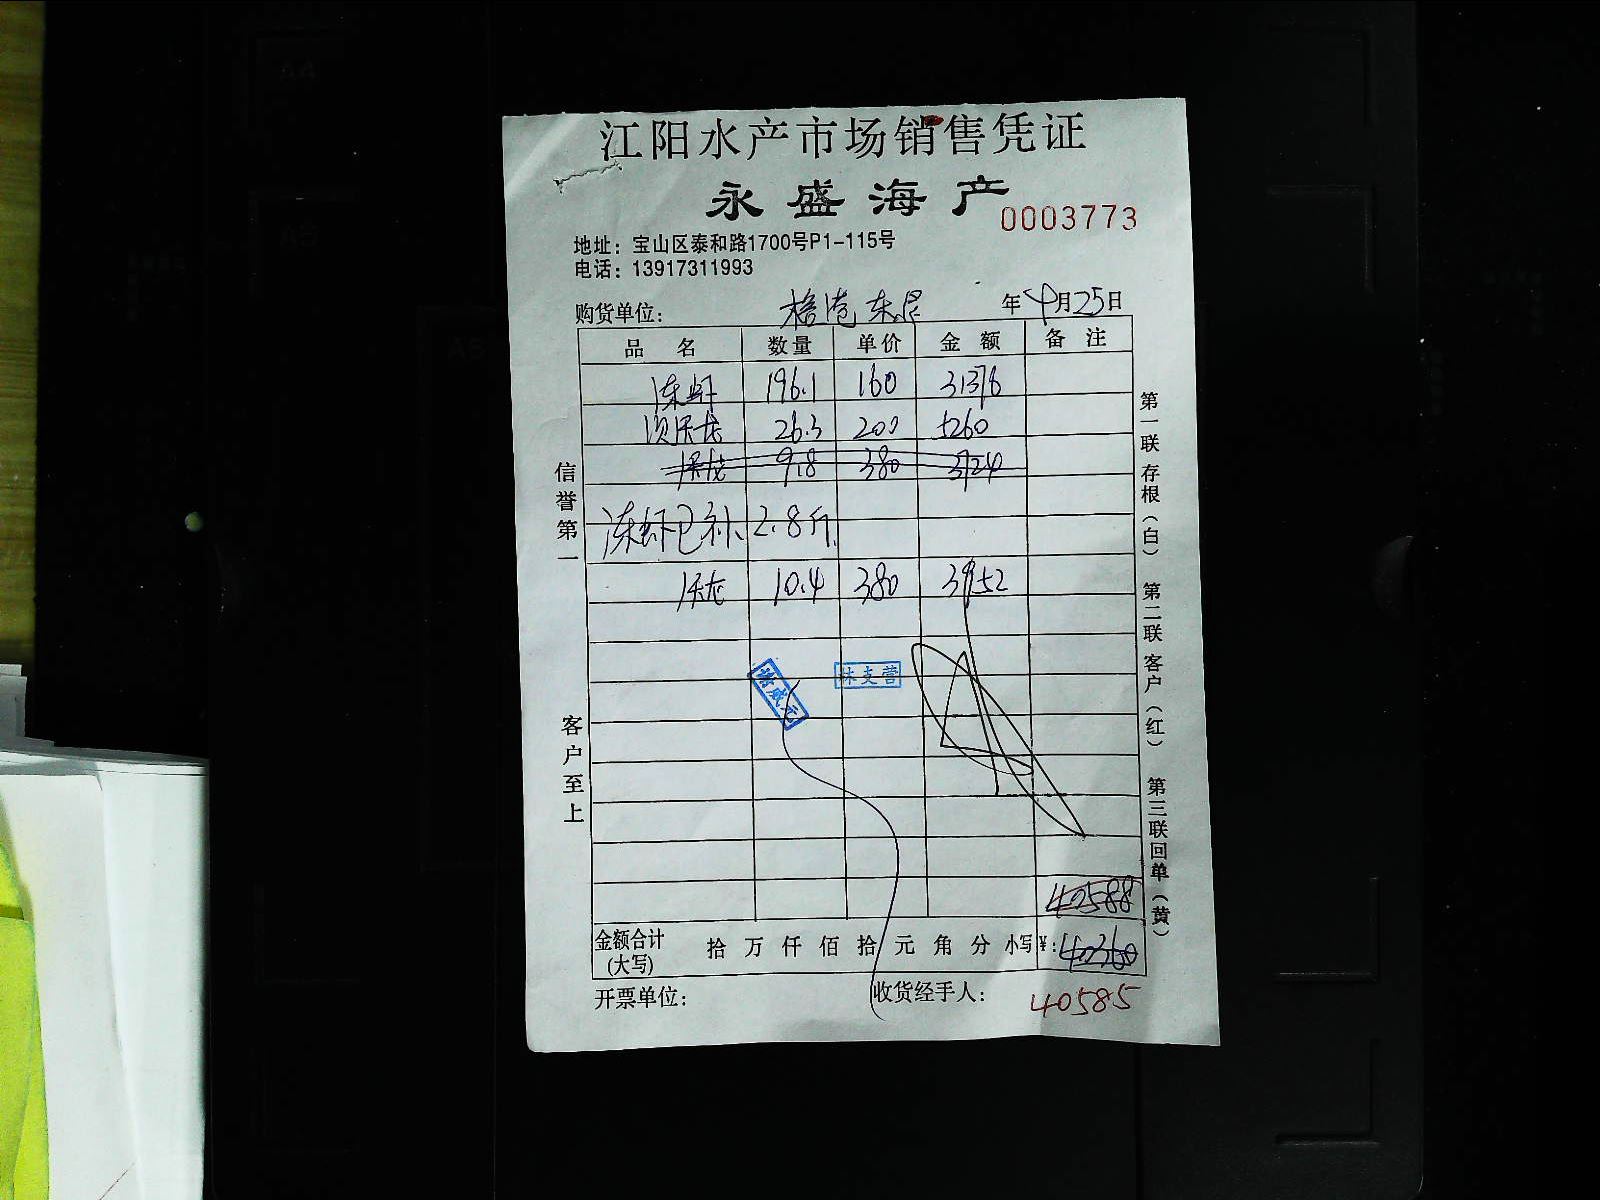 江阳水产市场销售凭证
永盛海产
0003773
地址：宝山区泰和路1700号P1-115号
电话：13917311993
购货单位： 年 4月25日
品名 数量 单价 金额 备注
冻虾 196.1 160 31376
26.3 200 5260
9.8 380 3724
冻虾已补 2.8斤
10.4 380 3952
林支营
40588
金额合计(大写) 拾 万 仟 佰 拾 元 角 分 小写¥：40360
开票单位： 收货经手人： 40585
信誉第一
客户至上
第一联 存根（白） 第二联 客户（红） 第三联 回单（黄）